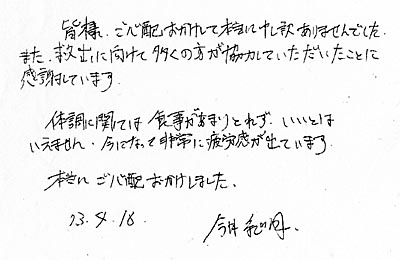 皆様、ご心配おかけして本当に申し訳ありませんでした。
また、救出に向けて多くの方が協力していただいたことに
感謝しています。
体調に関しては食事があまりとれず、いいとは
いえません。今になって非常に疲労感が出ています。
本当にご心配おかけしました。
'13.4.18.
今井